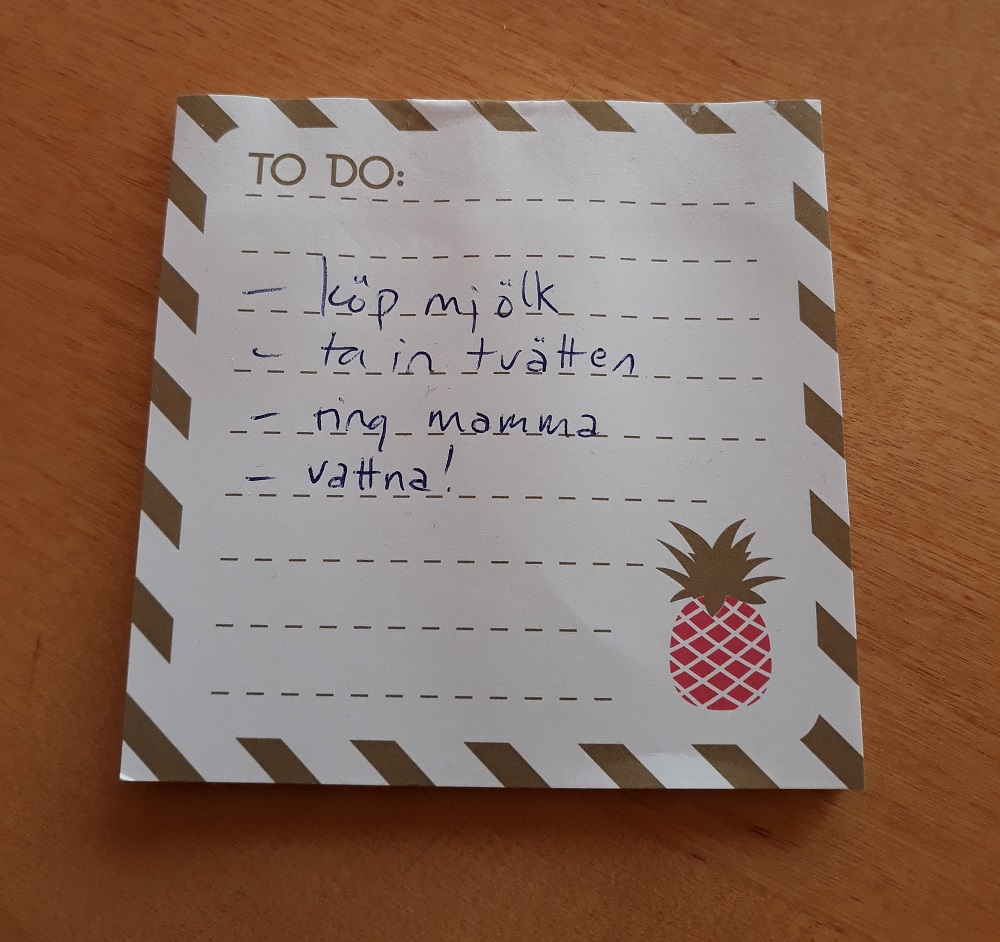 TO DO:
- köp mjölk
- ta in tvätten
- ring mamma
- vattna!